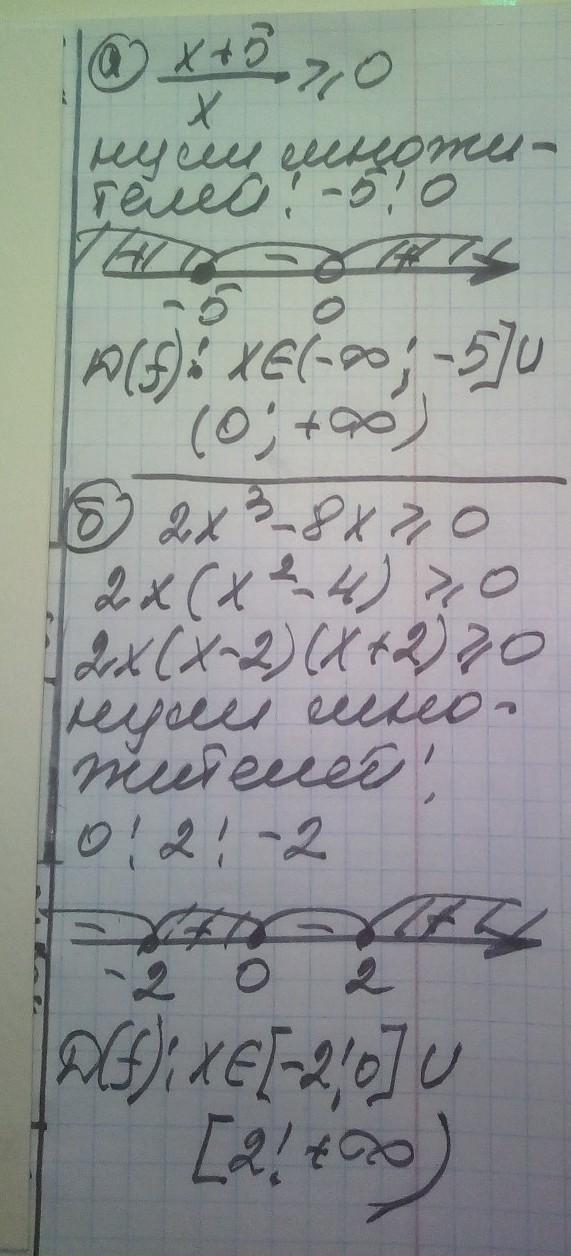 а) (x+5)/x ≥ 0
нули множи-
телей: -5; 0
+ - +
-5 0
D(f): x∈(-∞; -5]∪
(0; +∞)
б) 2x³-8x ≥ 0
2x(x²-4) ≥ 0
2x(x-2)(x+2) ≥ 0
нули мно-
жителей:
0; 2; -2
- + - +
-2 0 2
D(f): x∈[-2;0]∪
[2; +∞)